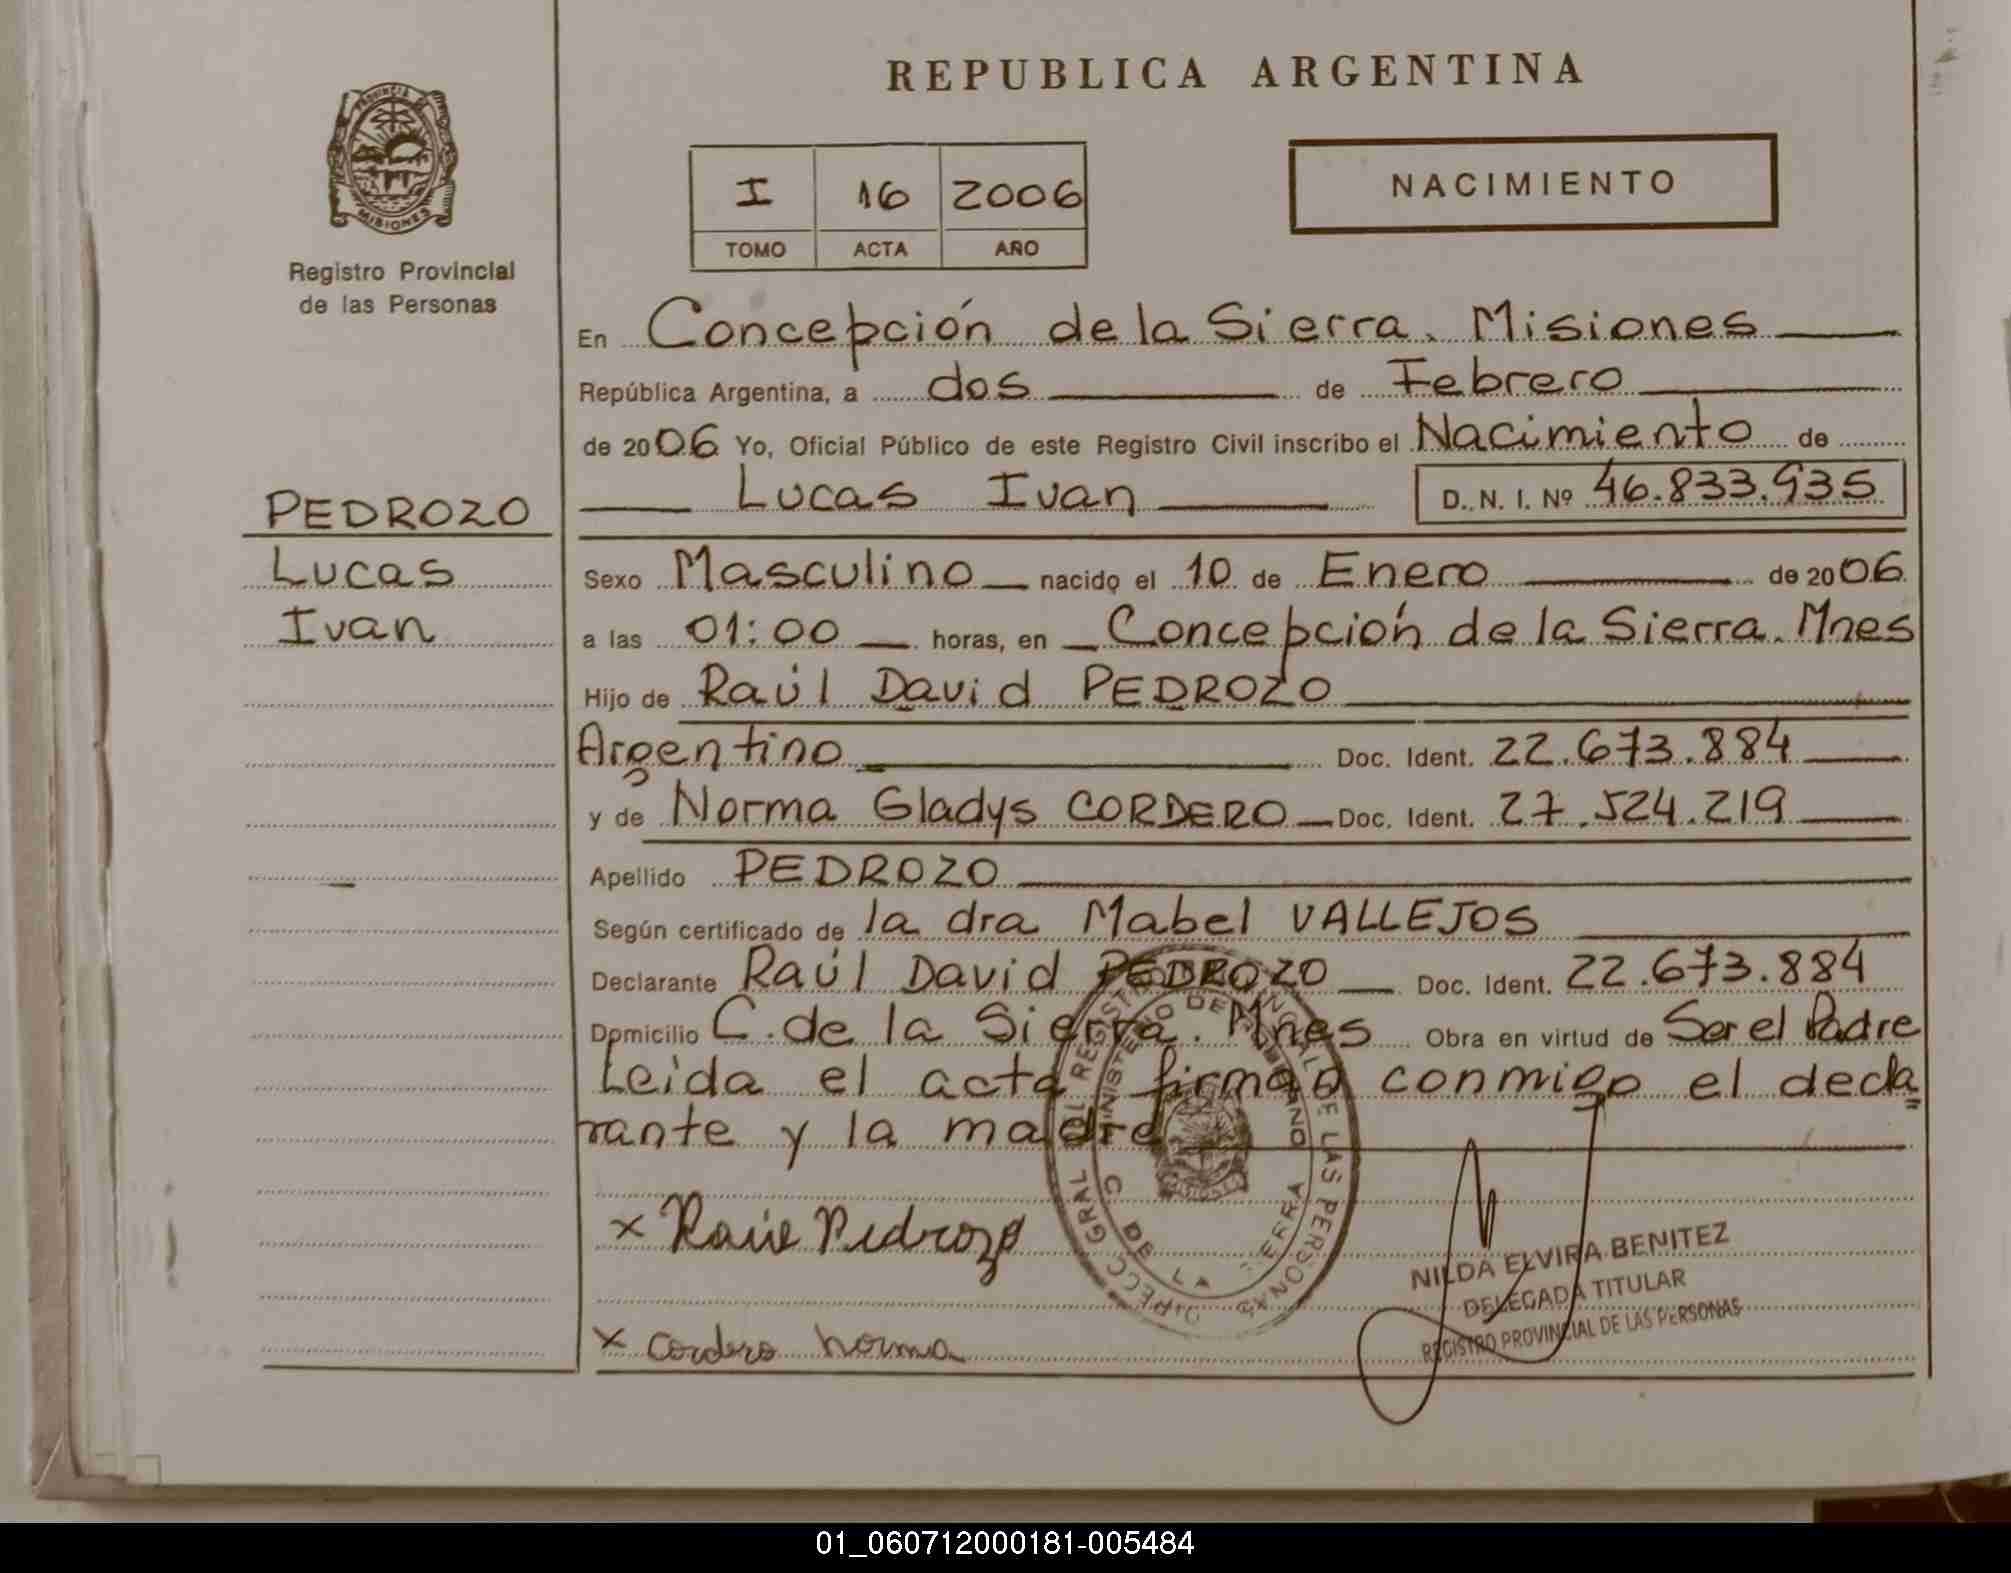 REPUBLICA ARGENTINA
PROVINCIA DE
MISIONES
Registro Provincial
de las Personas
I 16 2006
TOMO ACTA AÑO
NACIMIENTO
En Concepción de la Sierra. Misiones
República Argentina, a dos de Febrero
de 2006 Yo, Oficial Público de este Registro Civil inscribo el Nacimiento de
Lucas Ivan D. N. I. Nº 46.833.935
PEDROZO
Lucas
Ivan
Sexo Masculino nacido el 10 de Enero de 2006
a las 01:00 horas, en Concepción de la Sierra. Mnes
Hijo de Raúl David PEDROZO
Argentino Doc. Ident. 22.673.884
y de Norma Gladys CORDERO Doc. Ident. 27.524.219
Apellido PEDROZO
Según certificado de la dra Mabel VALLEJOS
Declarante Raúl David PEDROZO Doc. Ident. 22.673.884
Domicilio C. de la Sierra. Mnes Obra en virtud de Ser el Padre
Leida el acta firman conmigo el decla
rante y la madre
x Raúl Pedrozo
NILDA ELVIRA BENITEZ
DELEGADA TITULAR
REGISTRO PROVINCIAL DE LAS PERSONAS
x Cordero norma
C. DE LA SIERRA
01_060712000181-005484